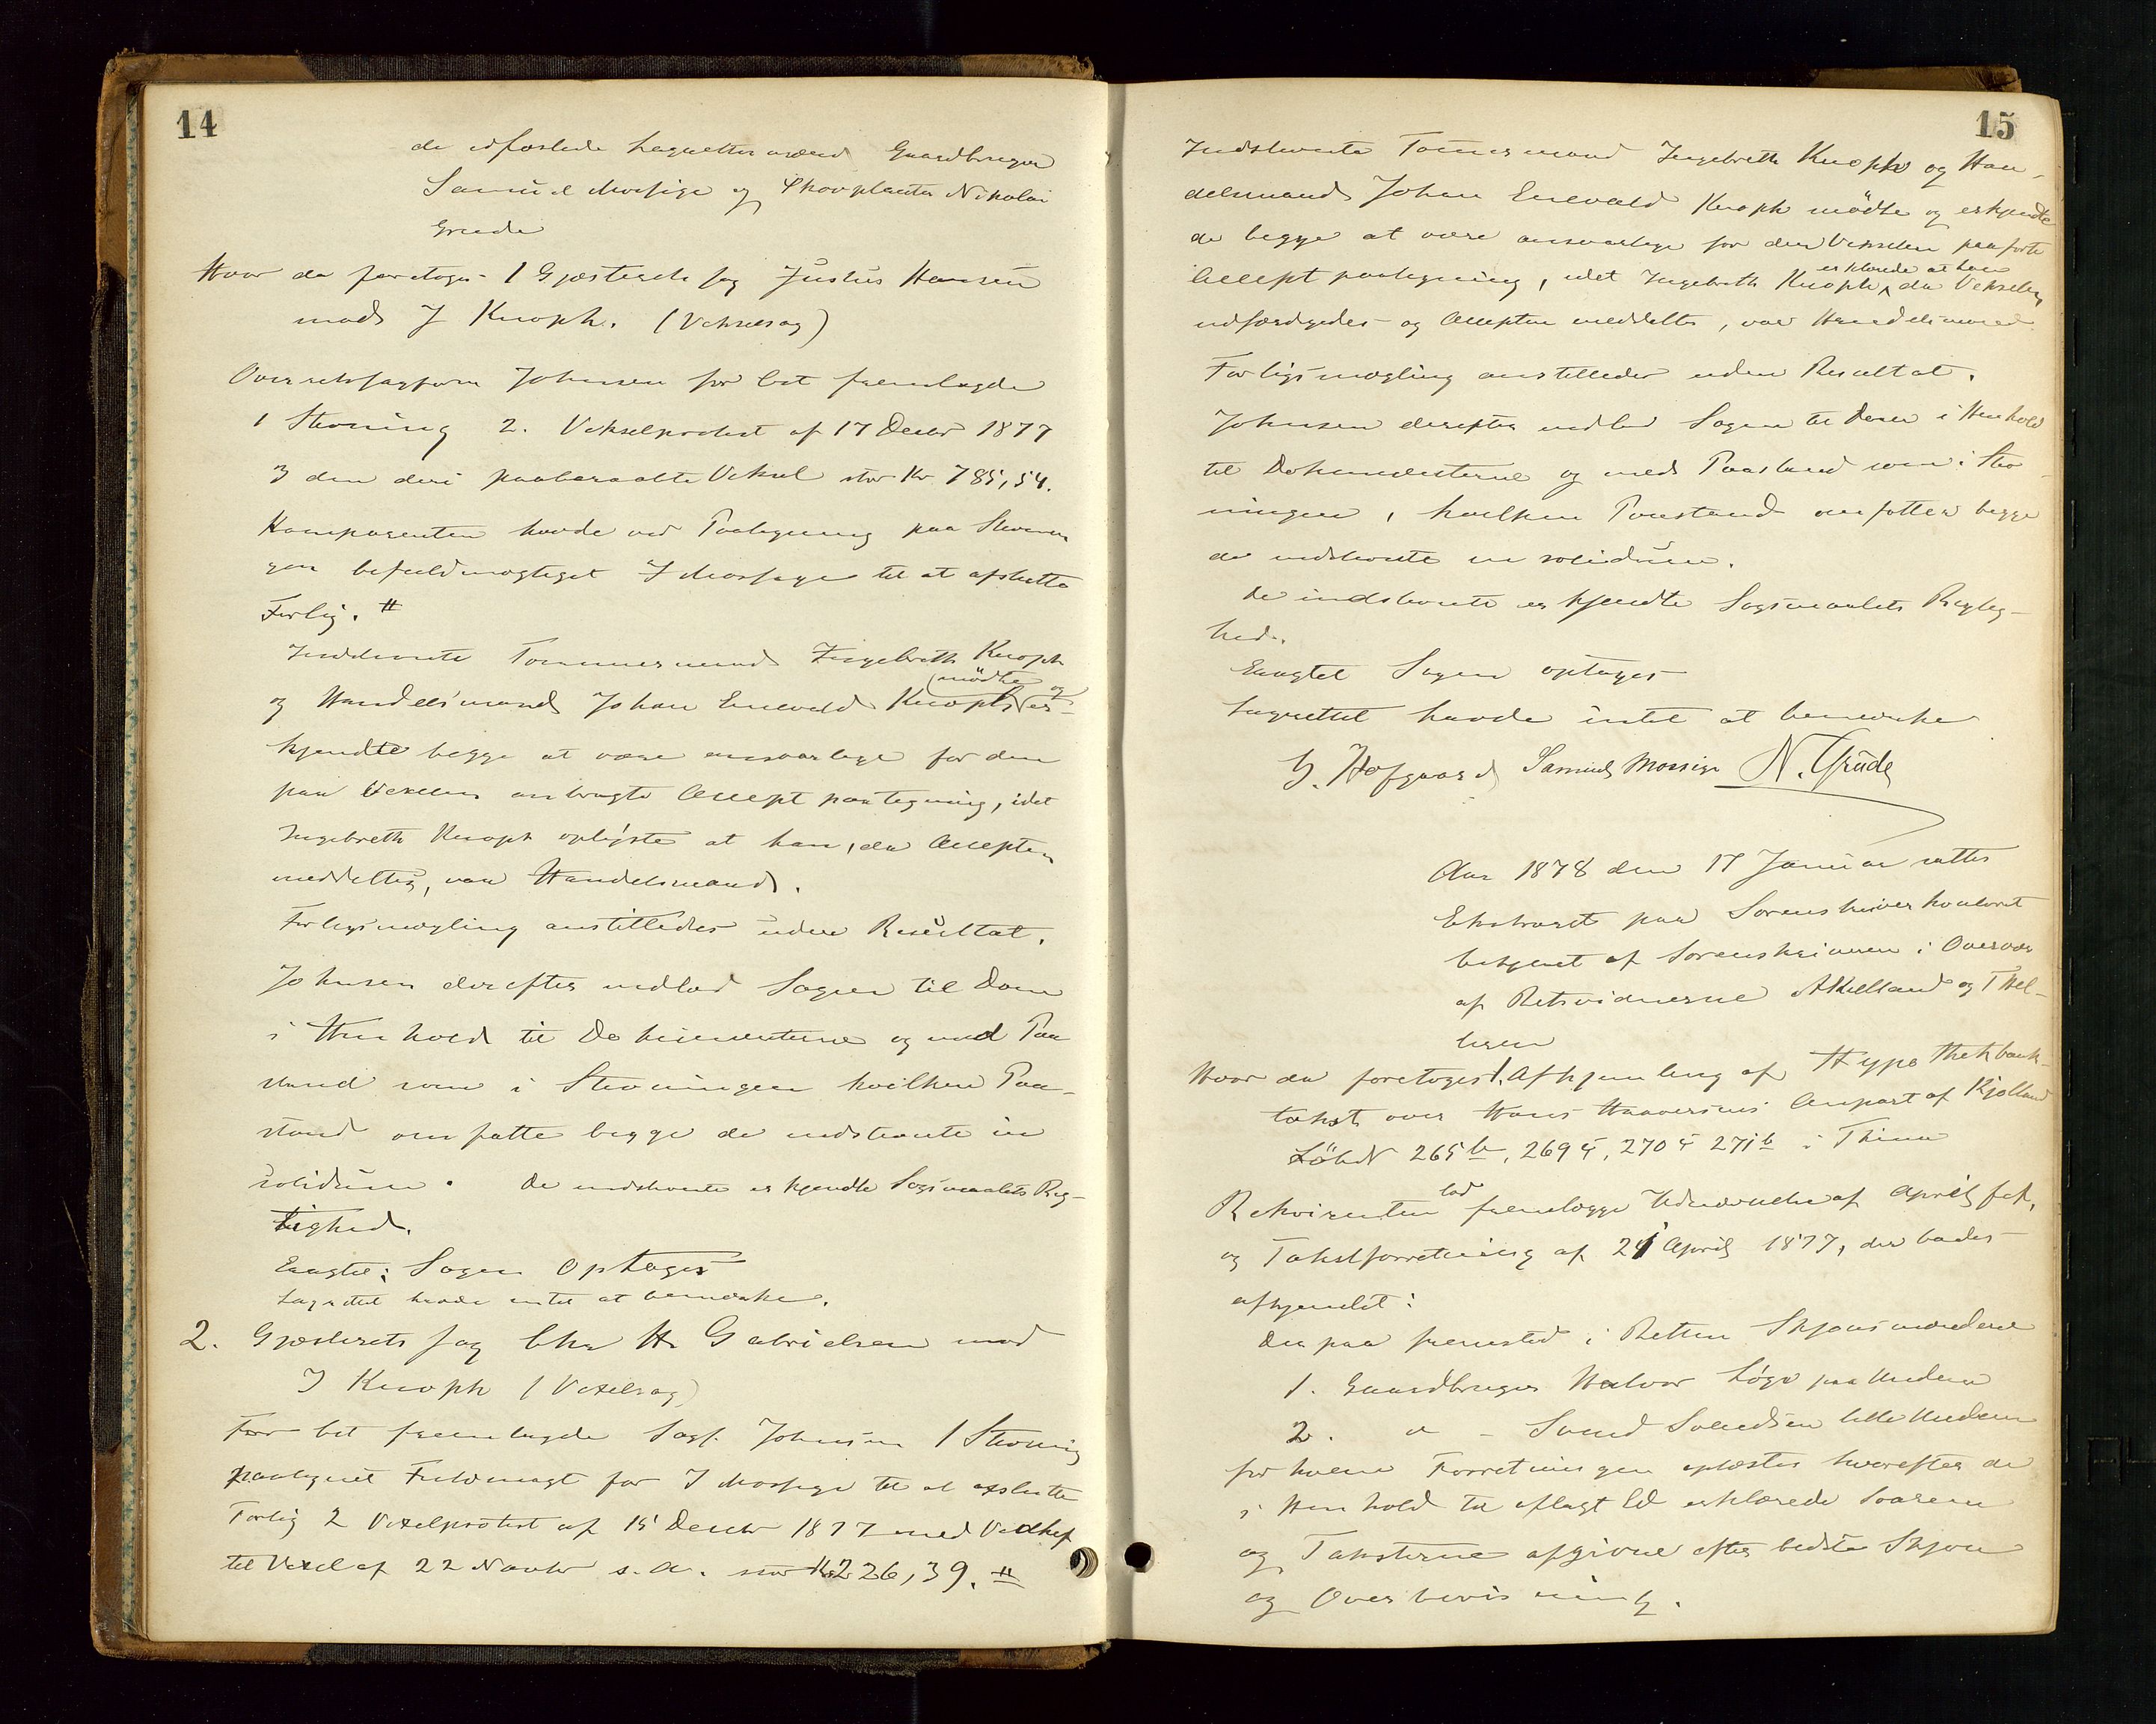 14
de udfæstede Lagrettesmænd Gaardbruger
Samuel Mossige og Skovplanter Nikolai
Grude
Hvor da foretoges 1 Gjæsterets Sag Justus Hansen
mod J Knoph. (Vekselsag)
Overretssagfører Johnsen for Cit fremlagde
1 Stevning 2. Vekselprotest af 17 Decbr 1877
3 den deri paaberaabte Veksel stor Kr 785,54.
Komparenten havde ved Paategning paa Stevnin
gen befuldmægtiget J Mossige til at afslutte
Forlig. #
Indstevnte Tømmermand Ingebreth Knoph
mödte og
og Handelsmand Johan Enevald Knoph er-
kjendte begge at være ansvarlige for den
paa Vexelen anbragte Accept paategning, idet
Ingebreth Knoph oplyste at han, da Accepten
meddeltes, var Handelsmand.
Forligsmægling anstilledes uden Resultat.
Johnsen derefter indlod Sagen til Dom
i Henhold til Dokumenterne og med Paa
stand som i Stevningen hvilken Paa-
stand omfatte begge de indstevnte in
solidum. De indstevnte erkjendte Sagsmaalets Rig-
tighed.
Eragtet: Sagen Optages
Lagrettet havde intet at bemærke.
2. Gjæsterets Sag Chr H. Gabrielsen mod
J Knoph (Vexelsag)
For Cit fremlagde Sagf. Johnsen 1 Stevning
paategnet Fuldmagt for J Mossige til at afslutte
Forlig 2 Vexelprotest af 15 Decbr 1877 med Vedhef
til Vexel af 22 Novbr s. A. stor Kr 226,39. #
15
Indstevnte Tømmermand Ingebreth Knoph og Han-
delsmand Johan Enevald Knoph mödte og erkjendte
de begge at være ansvarlige for den Vekselen paaførte
erklærede at han
Accept paategning, idet Ingebreth Knoph, da Vekselen
udfærdigedes og Accepten meddeltes, var Handelsmand.
Forligsmægling anstilledes uden Resultat.
Johnsen derefter indlod Sagen til Dom i Henhold
til Dokumenterne og med Paastand som i Stev
ningen, hvilken Paastand omfatter begge
de indstevnte in solidum.
De indstevnte erkjendte Sagsmaalets Rigtig-
hed.
Eragtet Sagen optages
Lagrettet havde intet at bemærke
G. Hofgaard Samuel Mossige N. Grude
Aar 1878 den 17 Januar sattes
Ekstraret paa Sorenskriverkontoret
betjent af Sorenskriveren i Overvær
af Retsvidnerne AKielland og T Hel-
gesen
Hvor da foretoges 1. Afhjemling af Hypothekbank-
takst over Hans Haaversens Anpart af Kjølland
LöbeN 265 b, 269 a, 270 a 271 b i Thime
lod
Rekvirenten fremlægge Udnævnelse af April f A.
og Takstforretning af 24 April 1877, der bades
afhjemlet:
Der paa fremstod i Retten Skjønsmændene
1. Gaardbruger Halvor Løge paa Undem
2. " - Svend Svendsen lille Undem
for hvem Forretningen oplæstes hvorefter de
i Henhold til aflagt Ed erklærede Svarene
og Taksterne afgivne efter bedste Skjøn
og Overbevisning.